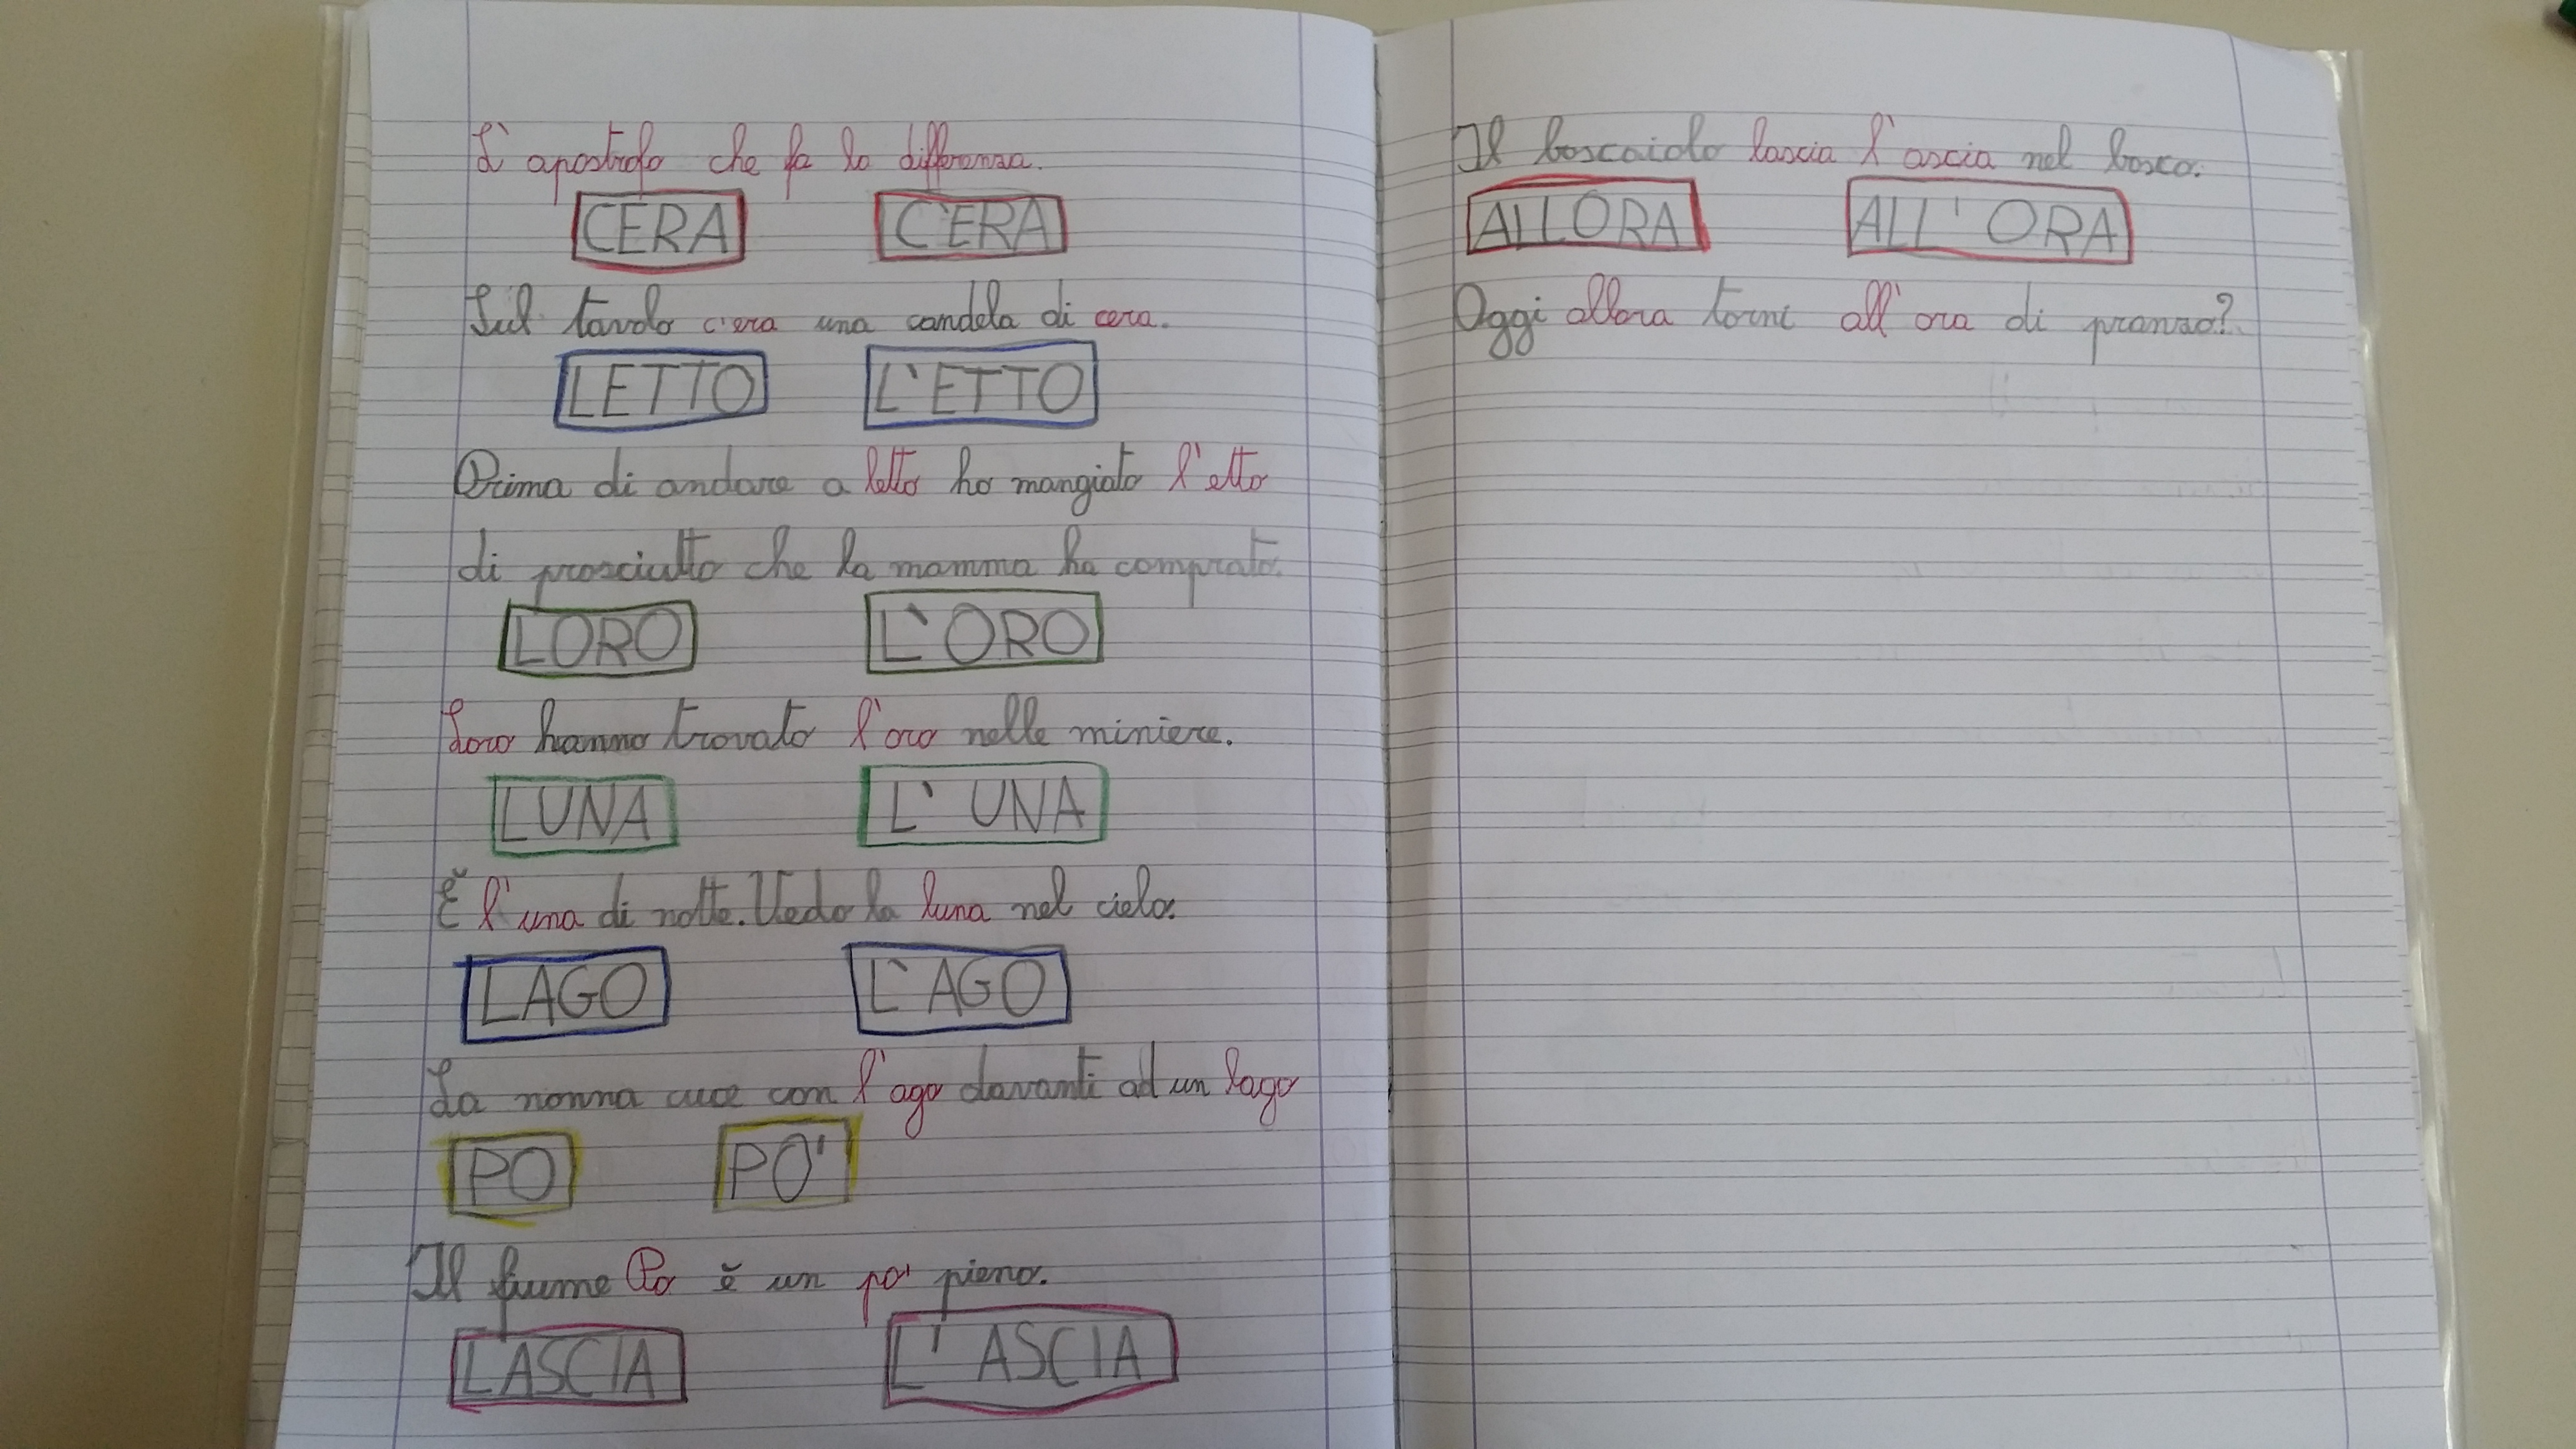 L'apostrofo che fa la differenza.
CERA C'ERA
Sul tavolo c'era una candela di cera.
LETTO L'ETTO
Prima di andare a letto ho mangiato l'etto
di prosciutto che la mamma ha comprato.
LORO L'ORO
Loro hanno trovato l'oro nelle miniere.
LUNA L'UNA
È l'una di notte. Vedo la luna nel cielo.
LAGO L'AGO
La nonna cuce con l'ago davanti ad un lago
PO PO'
Il fiume Po è un po' pieno.
LASCIA L'ASCIA
Il boscaiolo lascia l'ascia nel bosco.
ALLORA ALL'ORA
Oggi allora torni all'ora di pranzo?